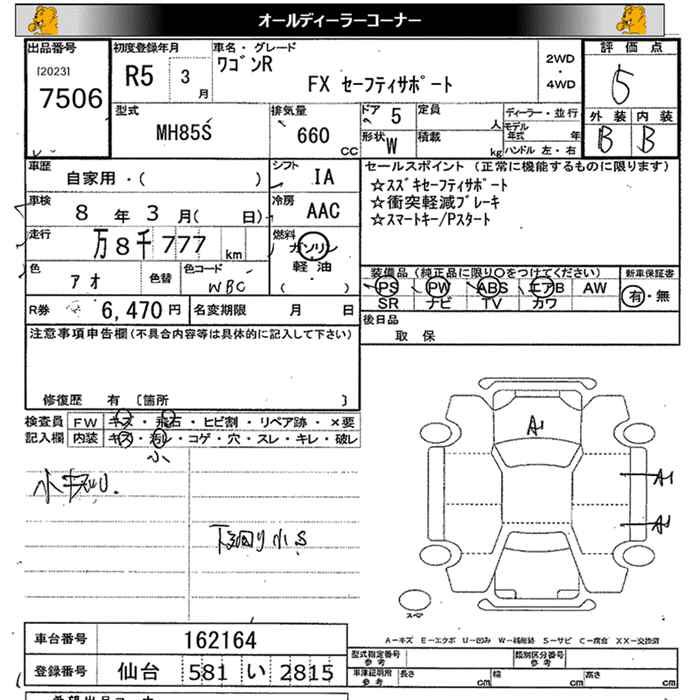 オールディーラーコーナー
出品番号
[2023]
7506
初度登録年月
R5 3 月
車名・グレード
ワゴンR
FX セーフティサポート
2WD
・
4WD
評価点
5
外装 内装
B B
型式
MH85S
排気量
660 CC
ドア 5
形状 W
定員 人
積載 kg
ディーラー・並行
モデル年式 年
ハンドル 左・右
車歴
自家用・( )
シフト IA
車検
8 年 3 月( 日)
冷房 AAC
走行
万 8千 777 km
燃料 ガソリン
軽油
( )
色 アオ
色替
色コード WBC
R券 6,470 円
名変期限 月 日
セールスポイント (正常に機能するものに限ります)
☆スズキセーフティサポート
☆衝突軽減ブレーキ
☆スマートキー/Pスタート
装備品 (純正品に限り○をつけてください)
PS PW ABS エアB AW
SR ナビ TV カワ
新車保証書
有・無
後日品
取 保
注意事項申告欄 (不具合内容等は具体的に記入して下さい)
修復歴 有 [箇所 ]
検査員記入欄
FW キズ・飛石・ヒビ割・リペア跡・×要
内装 キズ・汚レ・コゲ・穴・スレ・キレ・破レ
小
下回り小S
A1
A1
A1
スペア
A-キズ E-エクボ U-凹み W-補修跡 S-サビ C-腐食 XX-交換済
車台番号 162164
登録番号 仙台 581 い 2815
型式指定番号 参考
類別区分番号 参考
車庫証明用 参考
長さ cm 幅 cm 高さ cm
希望出品コーナー